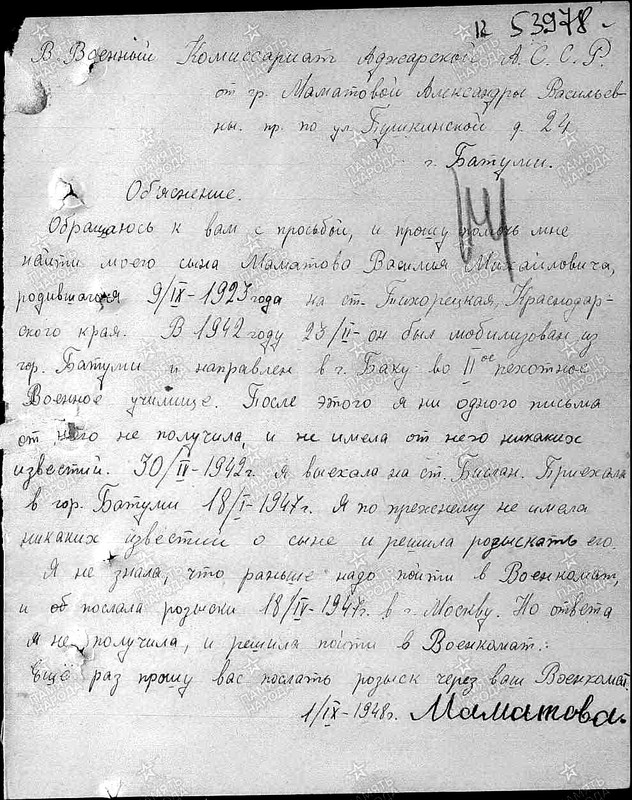 12 53978
В Военный Комиссариат Аджарской А. С. С. Р.
от гр. Маматовой Александры Васильев-
ны. пр. по ул. Пушкинской д. 24
г. Батуми.
Объяснение.
Обращаюсь к вам с просьбой, и прошу помочь мне
найти моего сына Маматова Василия Михайловича,
родившагося 9/IX-1923 года на ст. Тихорецкая, Краснодар-
ского края. В 1942 году 23/II он был мобилизован из
гор. Батуми и направлен в г. Баку во II ое пехотное
Военное училище. После этого я ни одного письма
от него не получила, и не имела от него никаких
известий. 30/IV-1942г. я выехала на ст. Беслан. Приехала
в гор. Батуми 18/I-1947г. Я по прежнему не имела
никаких известий о сыне и решила розыскать его.
Я не знала, что раньше надо пойти в Военкомат,
и послала розыски 18/IV-1947г. в г. Москву. Но ответа
я не получила, и решила пойти в Военкомат.
Ещё раз прошу вас послать розыск через ваш Военкомат.
1/IX-1948г. Маматова.
ПАМЯТЬ НАРОДА